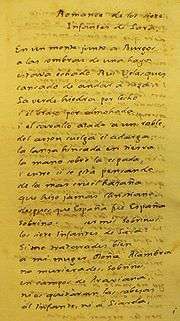 Romance de los siete
Infantes de Sara.
En un monte junto a Burgos
a las sombras de una haya
estava echado Ruy Velasquez
cansado de andar a caza
la verde hiedra por lecho
i el brazo por almohada
i el cavallo atado a un roble
del arzon cuelga el adarga
la lanza hincada en tierra
la mano sobre la espada,
i entre si esta pensando
de la mas cruel hazaña
que hizo jamas
despues que España fue España
sobrino mi sobrino
los siete Infantes de Sara.
Si me tratarades bien
a mi muger Doña Alambra
no murierades, sobrinos,
en campos de Arabiana.
no os quitaran las cabezas
al Infante, ni a Siarda,